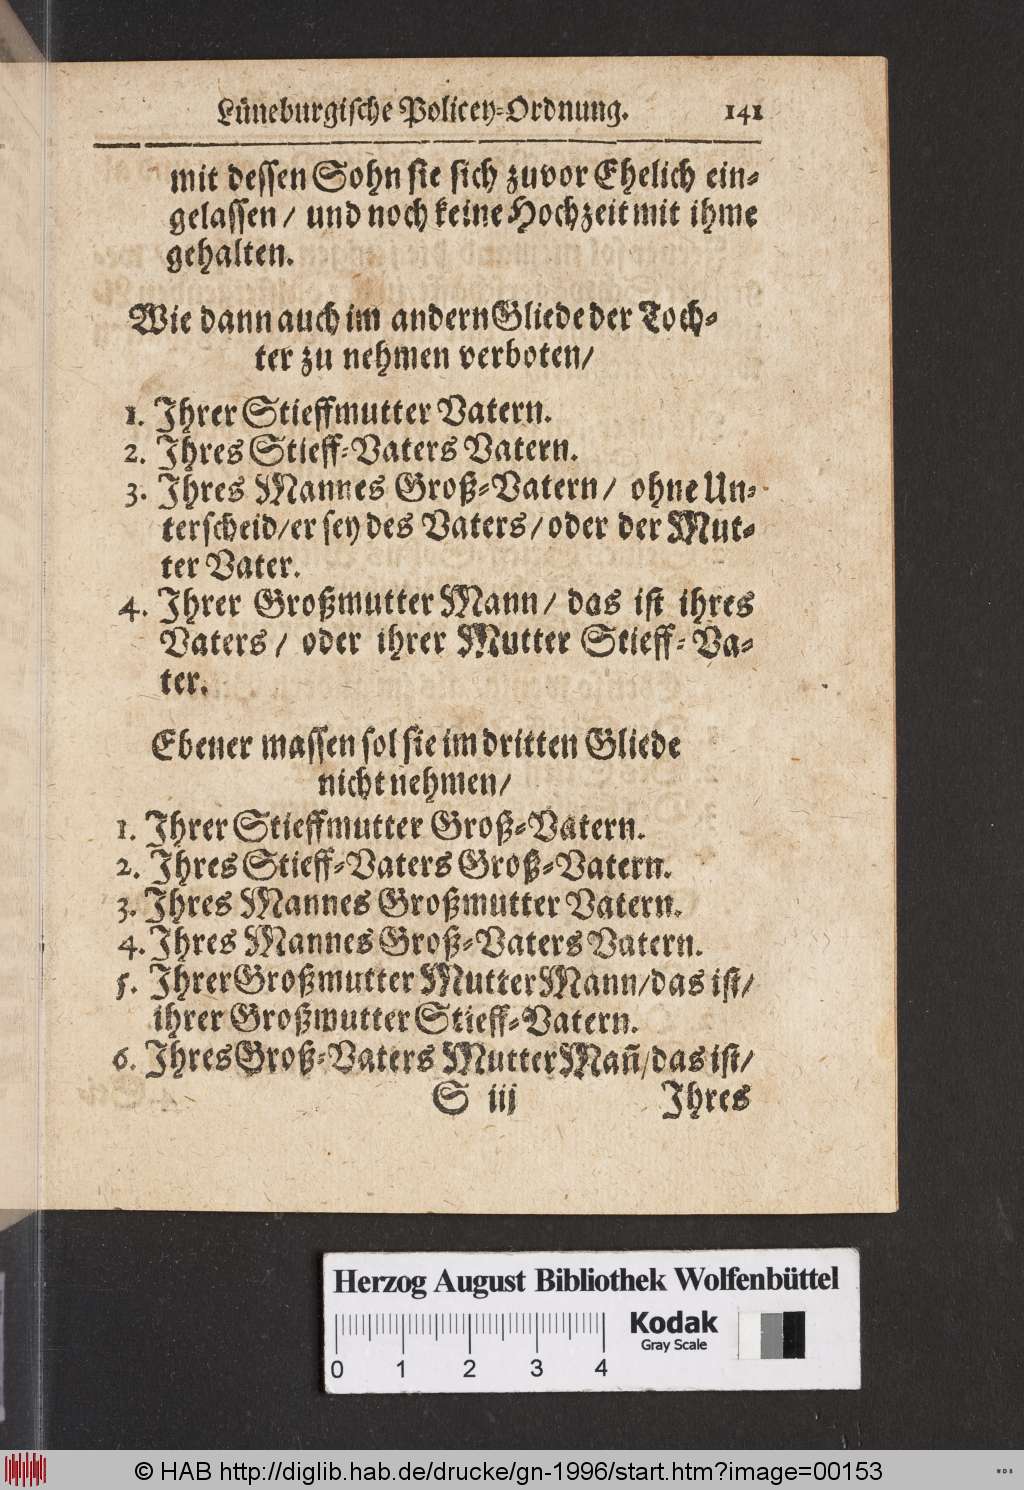 Lüneburgische Policey-Ordnung. 141
mit dessen Sohn sie sich zuvor Ehelich ein-
gelassen / und noch keine Hochzeit mit ihme
gehalten.
Wie dann auch im andern Gliede der Toch-
ter zu nehmen verboten /
1. Ihrer Stieffmutter Vatern.
2. Ihres Stieff-Vaters Vatern.
3. Ihres Mannes Groß-Vatern / ohne Un-
terscheid / er sey des Vaters / oder der Mut-
ter Vater.
4. Ihrer Großmutter Mann / das ist ihres
Vaters / oder ihrer Mutter Stieff-Va-
ter.
Ebener massen sol sie im dritten Gliede
nicht nehmen /
1. Ihrer Stieffmutter Groß-Vatern.
2. Ihres Stieff-Vaters Groß-Vatern.
3. Ihres Mannes Großmutter Vatern.
4. Ihres Mannes Groß-Vaters Vatern.
5. Ihrer Großmutter Mutter Mann / das ist /
ihrer Großmutter Stieff-Vatern.
6. Ihres Groß-Vaters Mutter Mañ / das ist /
S iij Ihres
Herzog August Bibliothek Wolfenbüttel
0 1 2 3 4
Kodak
Gray Scale
© HAB http://diglib.hab.de/drucke/gn-1996/start.htm?image=00153
WDB